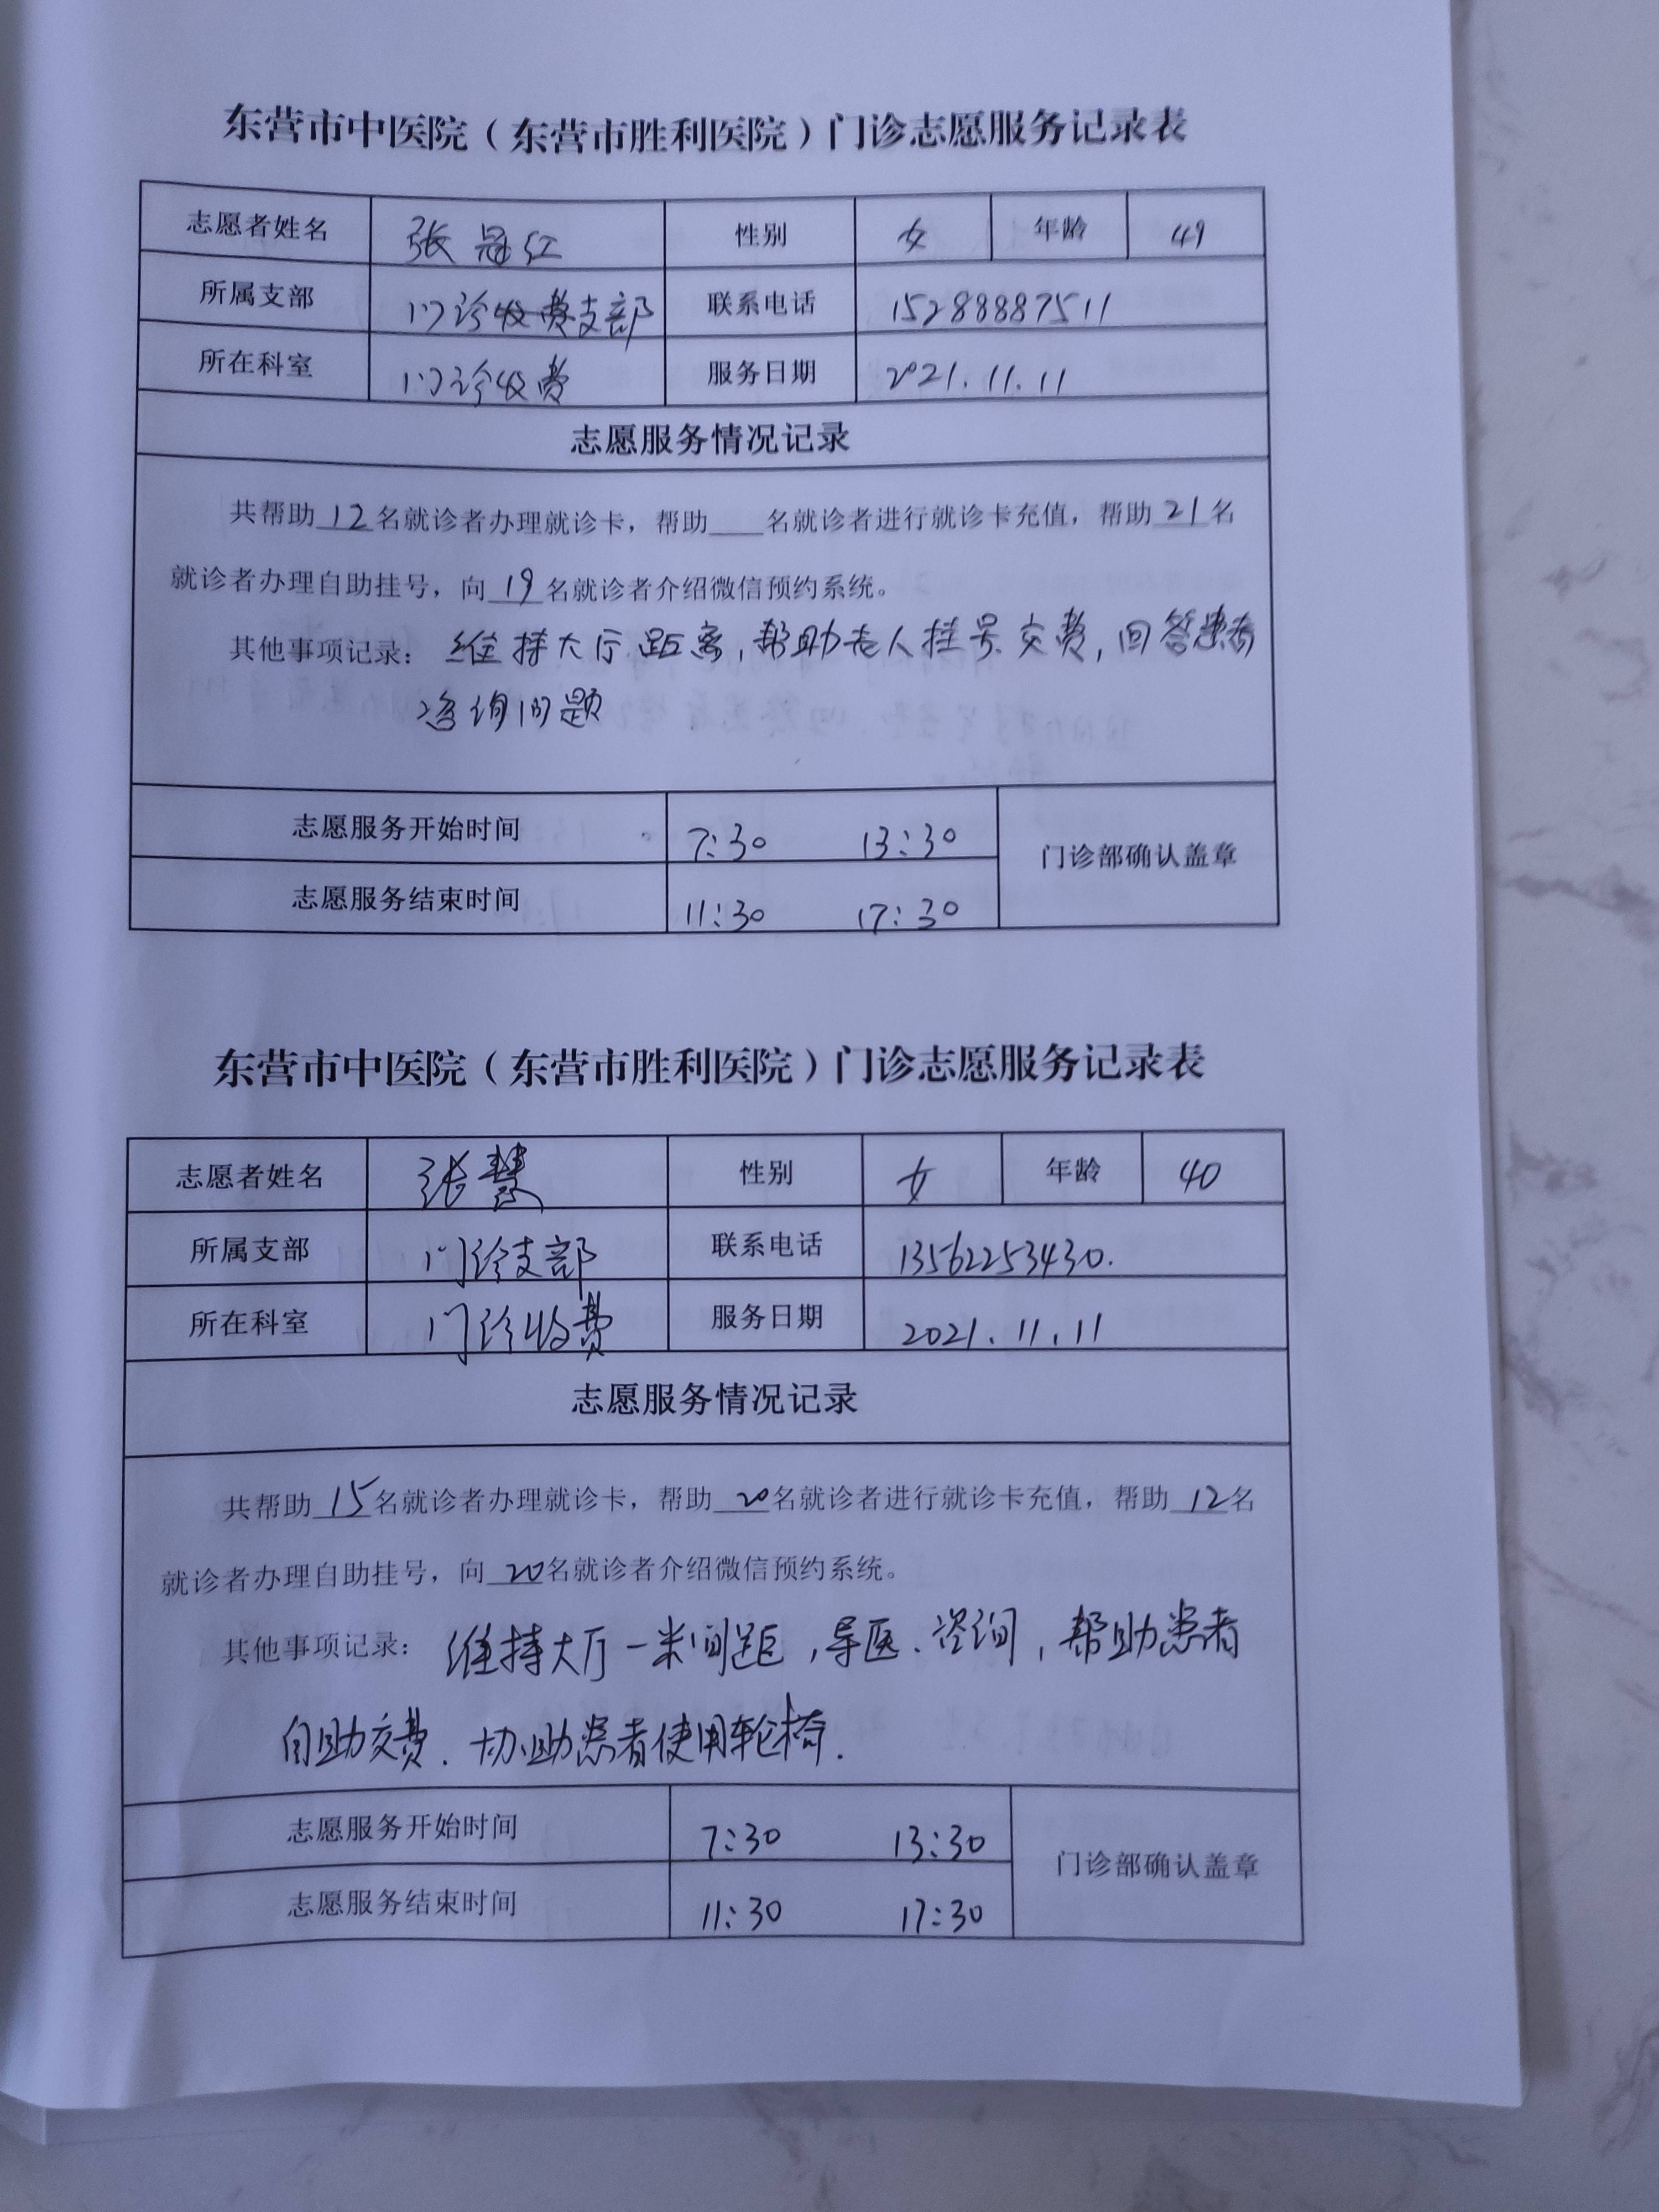 东营市中医院（东营市胜利医院）门诊志愿服务记录表
志愿者姓名 张冠红 性别 女 年龄 49
所属支部 门诊收费支部 联系电话 15288887511
所在科室 门诊收费 服务日期 2021.11.11
志愿服务情况记录
共帮助12名就诊者办理就诊卡，帮助___名就诊者进行就诊卡充值，帮助21名
就诊者办理自助挂号，向19名就诊者介绍微信预约系统。
其他事项记录：维持大厅距离，帮助老人挂号交费，回答患者
咨询问题
志愿服务开始时间 7:30 13:30
门诊部确认盖章
志愿服务结束时间 11:30 17:30
东营市中医院（东营市胜利医院）门诊志愿服务记录表
志愿者姓名 张慧 性别 女 年龄 40
所属支部 门诊支部 联系电话 13562253430.
所在科室 门诊收费 服务日期 2021.11.11
志愿服务情况记录
共帮助15名就诊者办理就诊卡，帮助20名就诊者进行就诊卡充值，帮助12名
就诊者办理自助挂号，向20名就诊者介绍微信预约系统。
其他事项记录：维持大厅一米间距，导医、咨询，帮助患者
自助交费、协助患者使用轮椅.
志愿服务开始时间 7:30 13:30
门诊部确认盖章
志愿服务结束时间 11:30 17:30